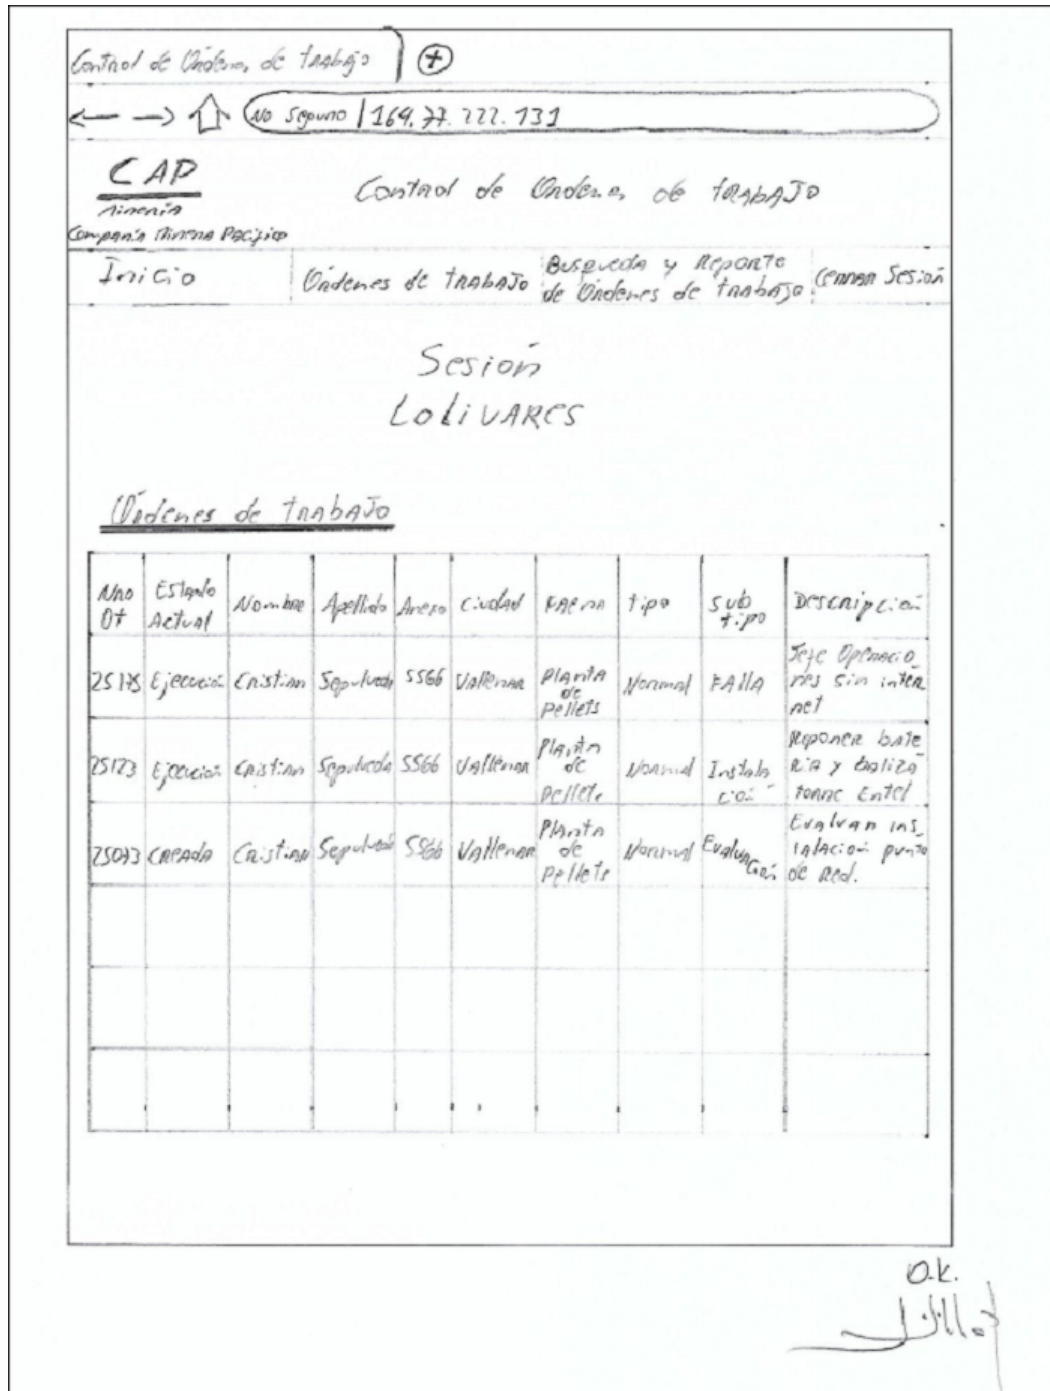 Control de Órdenes de trabajo +
No Seguro | 169.77.222.131
CAP
Minería
Compañía Minera Pacífico
Control de Ordenes de TRABAJO
Inicio
Órdenes de TRABAJO
Busqueda y Reporte
de Órdenes de trabajo
Cerrar Sesión
Sesión
LOLIVARES
Órdenes de trabajo
Nro
OT
Estado
Actual
Nombre
Apellido
Anexo
Ciudad
FAENA
tipo
sub
tipo
Descripción
25175 Ejecución Cristian Sepulveda 5566 Vallenar Planta
de
Pellets
Normal FAllA
Jefe Operacio
nes sin inter
net
25123 Ejecución Cristian Sepulveda 5566 Vallenar Planta
de
Pellets
Normal Instala
ción
Reponer bate
ria y baliza
torre Entel
25073 CREADA Cristian Sepulveda 5566 Vallenar Planta
de
Pellets
Normal Evalua
ción
Evaluar ins
talación punto
de Red.
O.K.